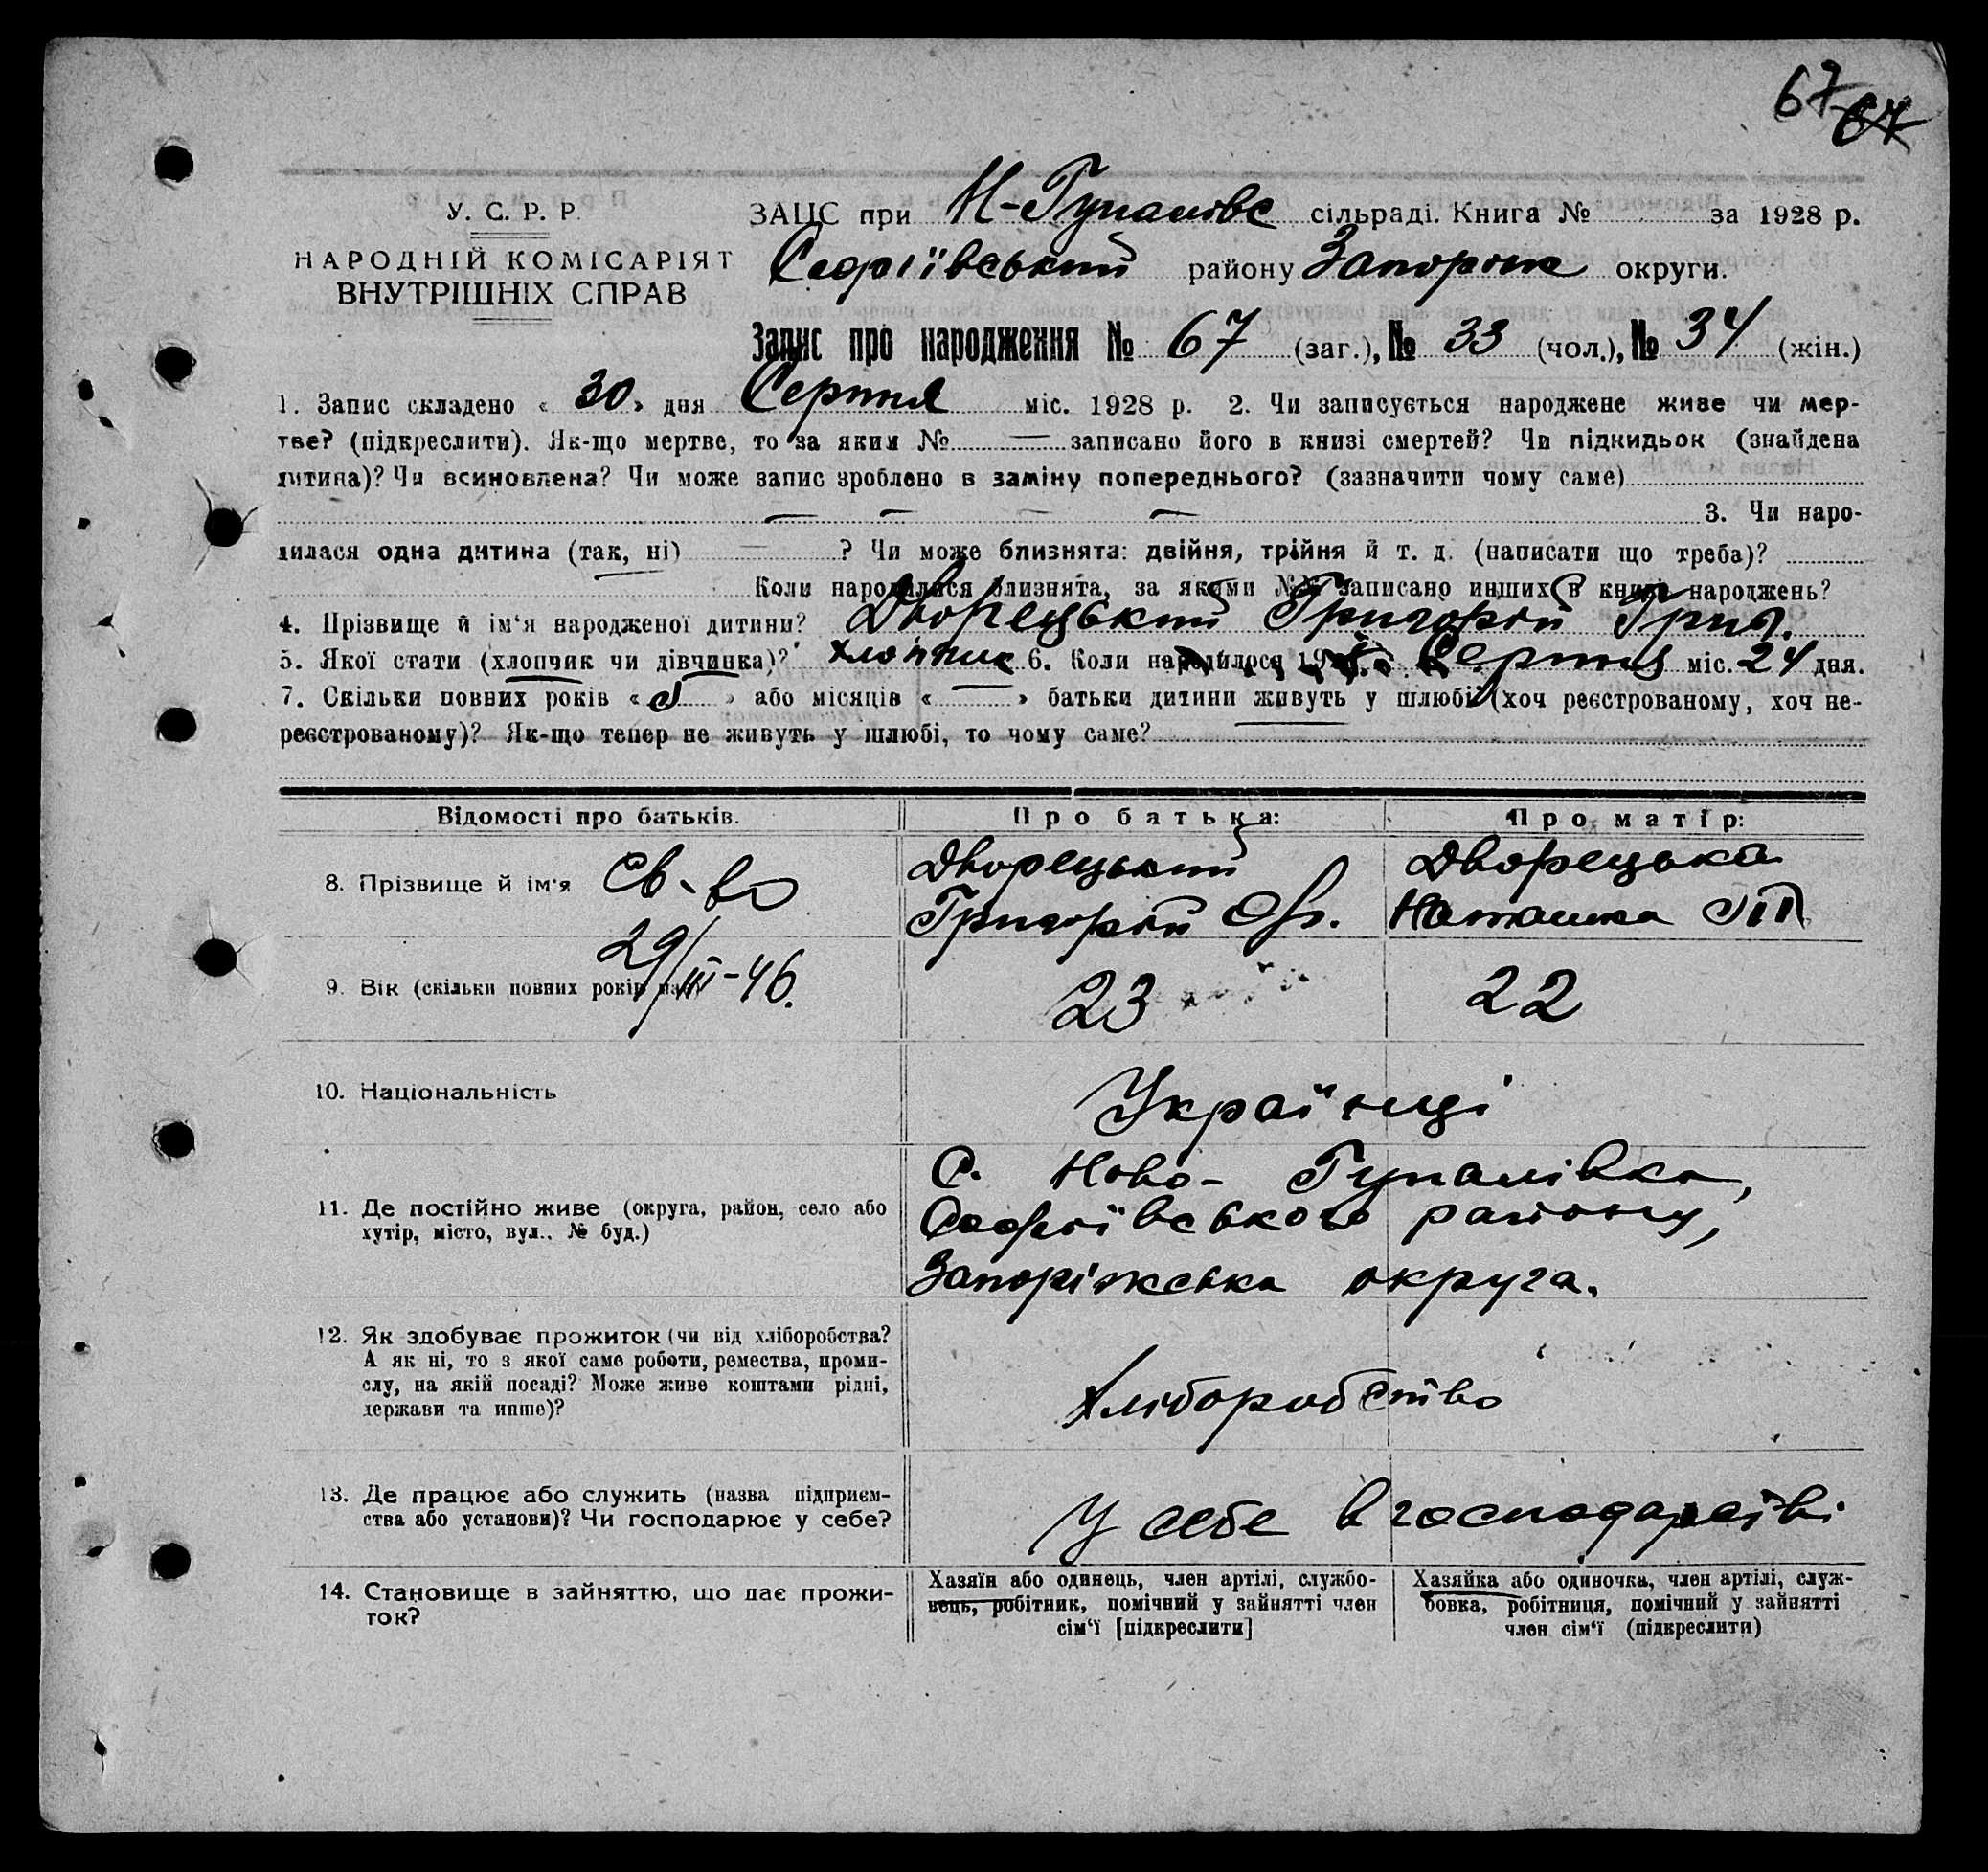 67 67
У. С. Р. Р.
НАРОДНІЙ КОМІСАРІЯТ
ВНУТРІШНІХ СПРАВ
ЗАЦС при Н-Гупалівс сільраді. Книга № за 1928 р.
Софіївський району Запоріж округи.
Запис про народження № 67 (заг.), № 33 (чол.), № 34 (жін.)
1. Запис складено « 30 » дня Серпня міс. 1928 р. 2. Чи записується народжене живе чи мер-
тве? (підкреслити). Як-що мертве, то за яким № — записано його в книзі смертей? Чи підкидьок (знайдена
дитина)? Чи всиновлена? Чи може запис зроблено в заміну попереднього? (зазначити чому саме)
— — — — 3. Чи наро-
дилася одна дитина (так, ні) — ? Чи може близнята: двійня, трійня й т. д. (написати що треба)?
Коли народилися близнята, за якими №№ записано инших в книзі народжень?
4. Прізвище й ім‘я народженої дитини? Дворецький Григорій Григ.
5. Якої стати (хлопчик чи дівчинка)? хлопчик 6. Коли народилося 19 Серпня міс. 24 дня.
7. Скільки повних років « » або місяців « — » батьки дитини живуть у шлюбі (хоч реєстрованому, хоч не-
реєстрованому)? Як-що тепер не живуть у шлюбі, то чому саме? —
Відомості про батьків. Про батька: Про матір:
8. Прізвище й ім‘я Св-во Дворецький Дворецька
Григорій Наташка
29/III-46.
9. Вік (скільки повних років має) 23 22
10. Національність Українці
11. Де постійно живе (округа, район, село або
хутір, місто, вул., № буд.)
С. Ново-Гупалівка,
Софіївського району,
Запоріжська округа.
12. Як здобуває прожиток (чи від хліборобства?
А як ні, то з якої саме роботи, ремества, проми-
слу, на якій посаді? Може живе коштами рідні,
держави та инше)?
Хліборобство
13. Де працює або служить (назва підприєм-
ства або установи)? Чи господарює у себе?
У себе в господарстві
14. Становище в зайняттю, що дає прожи-
ток?
Хазяїн або одинець, член артілі, службо-
вець, робітник, помічний у зайнятті член
сім‘ї [підкреслити]
Хазяйка або одиночка, член артілі, служ-
бовка, робітниця, помічний у зайнятті
член сім‘ї (підкреслити)